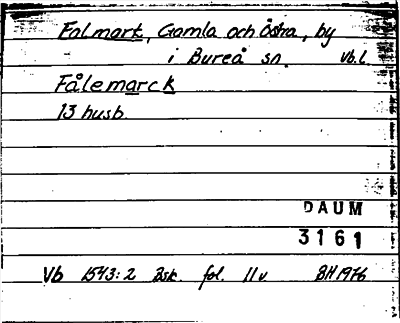 Falmark, Gamla och Östra, by
i Bureå sn. Vb.l.
Fålemarck
13 husb.
DAUM
3161
Vb 1543:2 Bsk. fol. 11v BH 1976